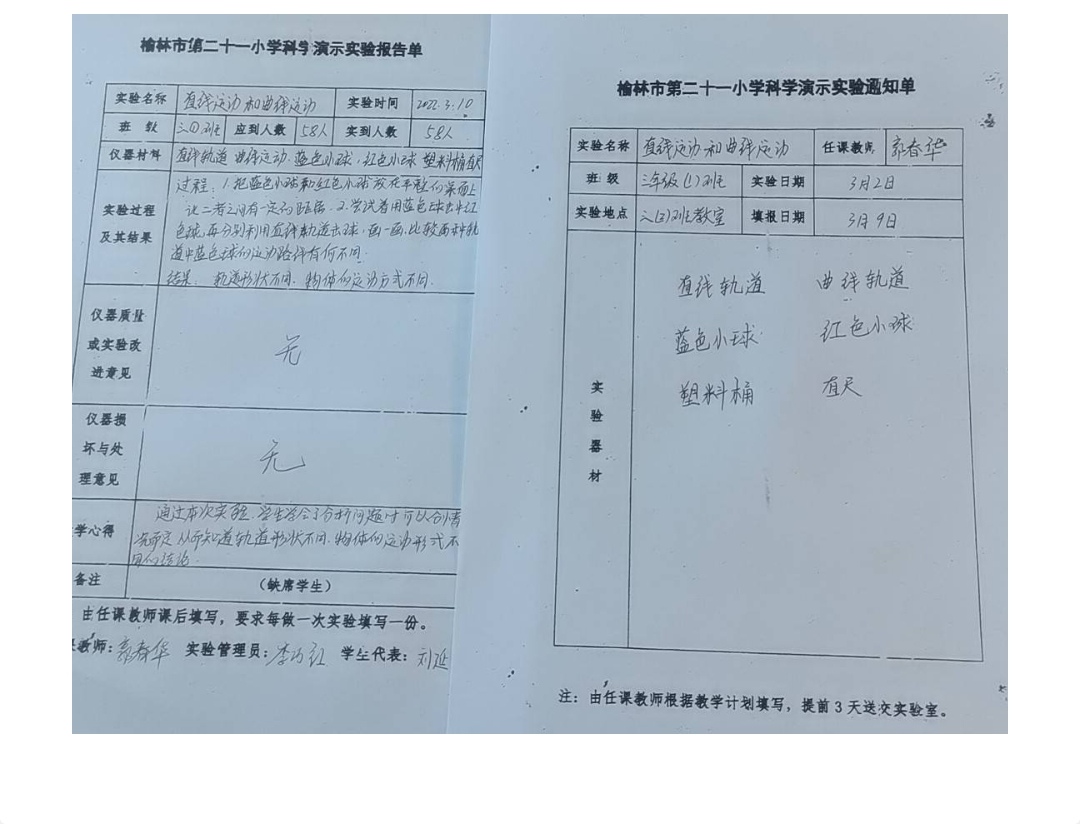 榆林市第二十一小学科学演示实验报告单
实验名称 直线运动和曲线运动 实验时间 2022.3.10
班 级 三(1)班 应到人数 58人 实到人数 58人
仪器材料 直线轨道 曲线运动 蓝色小球 红色小球 塑料桶 直尺
实验过程
及其结果
过程:1.把蓝色小球和红色小球放在平整的桌面上
让二者之间有一定的距离 2.尝试着用蓝色球击中红
色球,再分别利用直线轨道击球 画一画,比较两种轨
道中蓝色球的运动路线有何不同
结果: 轨道形状不同,物体的运动方式不同.
仪器质量
或实验改
进意见
无
仪器损
坏与处
理意见
无
学心得
通过本次实验,学生学会了分析问题时可以分情
况而定 从而知道轨道形状不同,物体的运动形式不
同的结论
备注 (缺席学生)
由任课教师课后填写,要求每做一次实验填写一份。
教师:郭春华 实验管理员:李巧红 学生代表:刘延
榆林市第二十一小学科学演示实验通知单
实验名称 直线运动和曲线运动 任课教师 郭春华
班 级 三年级(1)班 实验日期 3月2日
实验地点 三(2)班教室 填报日期 3月9日
实
验
器
材
直线轨道 曲线轨道
蓝色小球 红色小球
塑料桶 直尺
注:由任课教师根据教学计划填写,提前3天送交实验室。